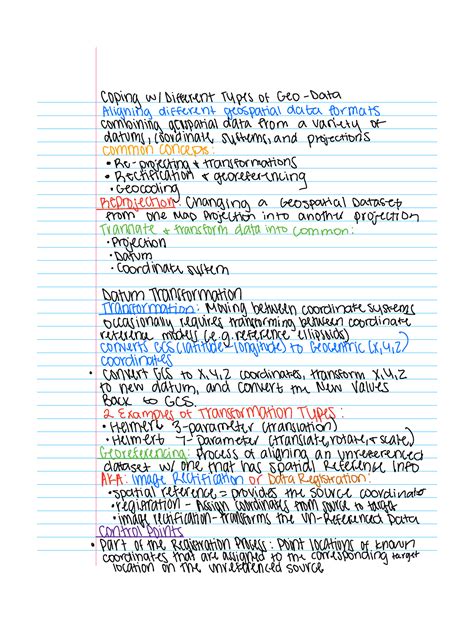 Coping w/ Different Types of Geo-Data
Aligning different geospatial data formats
combining geospatial data from a variety of
datums, coordinate systems, and projections
Common Concepts:
• Re-projecting & transformations
• Rectification & georeferencing
• Geocoding
Reprojection: Changing a Geospatial Dataset
from one map projection into another projection
Translate & transform data into common:
• Projection
• Datum
• Coordinate system
Datum Transformation
Transformation: Moving between coordinate systems
occasionally requires transforming between coordinate
reference models (e.g. reference ellipsoids)
converts GCS (latitude-longitude) to Geocentric (X,Y,Z)
coordinates
• Convert GCS to X,Y,Z coordinates, transform X,Y,Z
to new datum, and convert the New Values
Back to GCS.
2 Examples of Transformation Types:
• Helmert 3-parameter (translation)
• Helmert 7-parameter (translate, rotate, & scale)
Georeferencing: Process of aligning an unreferenced
dataset w/ one that has spatial reference info
AKA: Image Rectification or Data Registration:
• spatial reference = provides the source coordinator
• registration - Assign coordinates from source to target
• image rectification - transforms the un-Referenced Data
Control Points
• Part of the Registration Process: Point locations of known
coordinates that are assigned to the corresponding target
location on the unreferenced source